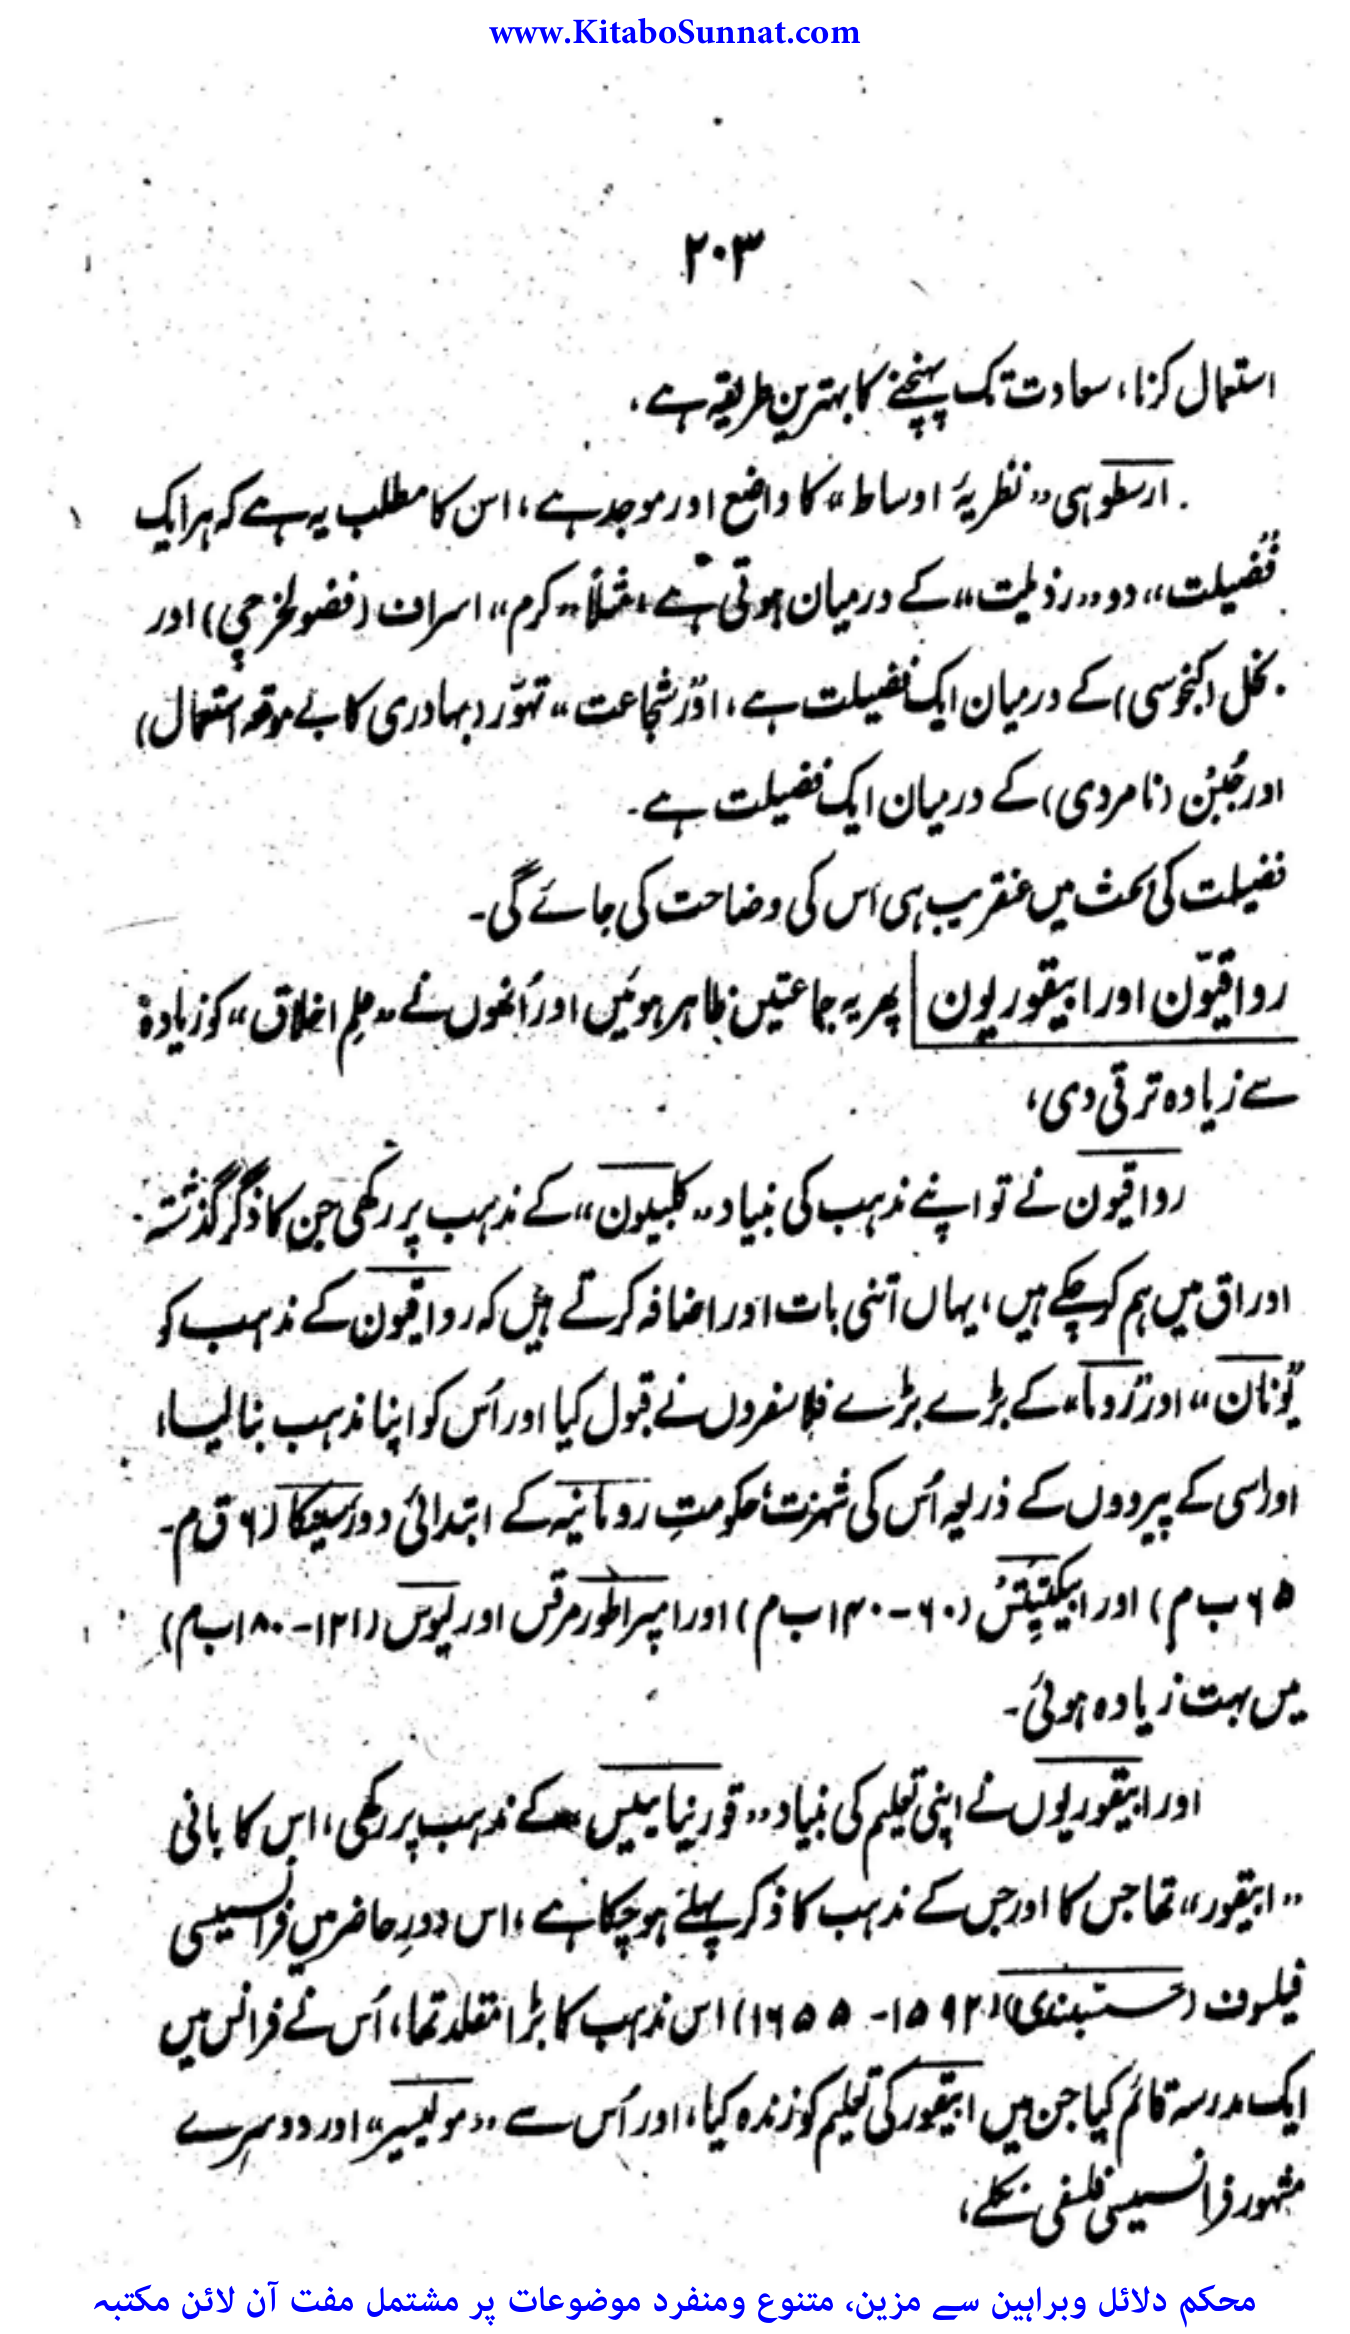 www.KitaboSunnat.com
۲۰۳
استعمال کرنا، سعادت تک پہنچنے کا بہترین طریقہ ہے،
ارسطو ہی "نظریۂ اوساط" کا واضع اور موجد ہے، اس کا مطلب یہ ہے کہ ہر ایک
"فضیلت" دو "رذیلت" کے درمیان ہوتی ہے، مثلاً "کرم" اسراف (فضولخرچی) اور
بخل (کنجوسی) کے درمیان ایک فضیلت ہے، اور "شجاعت" تہوّر (بہادری کا بے موقعہ استعمال)
اور جُبْن (نامردی) کے درمیان ایک فضیلت ہے۔
فضیلت کی بحث میں عنقریب ہی اس کی وضاحت کی جائے گی۔
رواقیّون اور ابیقوریون پھر یہ جماعتیں ظاہر ہوئیں اور اُنھوں نے "علمِ اخلاق" کو زیادہ
سے زیادہ ترقی دی،
رواقیون نے تو اپنے مذہب کی بنیاد "کلبیون" کے مذہب پر رکھی جن کا ذکر گذشتہ
اوراق میں ہم کر چکے ہیں، یہاں اتنی بات اور اضافہ کرتے ہیں کہ رواقیون کے مذہب کو
"یونان" اور "روما" کے بڑے بڑے فلاسفروں نے قبول کیا اور اُس کو اپنا مذہب بنا لیا،
اور اسی کے پیرووں کے ذریعہ اُس کی شہرت حکومتِ رومانیہ کے ابتدائی دور سینکا (۶ ق م۔
۶۵ ب م) اور ابیکتیتس (۶۰-۱۴۰ ب م) اور امپراطور مرقس اور لیوس (۱۲۱-۱۸۰ ب م)
میں بہت زیادہ ہوئی۔
اور ابیقوریوں نے اپنی تعلیم کی بنیاد "قورنیائیس" کے مذہب پر رکھی، اس کا بانی
"ابیقور" تھا جس کا اور جس کے مذہب کا ذکر پہلے ہو چکا ہے، اس دورِ حاضر میں فرانسیسی
فیلسوف (جسنبندی) (۱۵۹۲-۱۶۵۵) اس مذہب کا بڑا مقلد تھا، اُس نے فرانس میں
ایک مدرسہ قائم کیا جن میں ابیقور کی تعلیم کو زندہ کیا، اور اُس سے "مولییر" اور دوسرے
مشہور فرانسیسی فلسفی نکلے،
محکم دلائل وبراہین سے مزین، متنوع ومنفرد موضوعات پر مشتمل مفت آن لائن مکتبہ